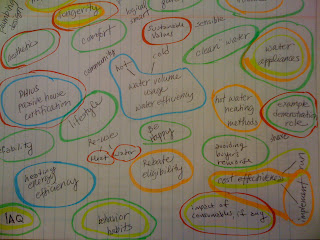 longevity
logical
smart
sustainable
values
sensible
aesthetics
comfort
"clean" water
water
appliances
community
hot
cold
water volume
usage
water efficiency
PHIUS
passive house
certification
lifestyle
hot water
heating
methods
example
demonstration
role
Re-use
Heat
water
Be
happy
avoiding
buyers
remorse
heating
energy
efficiency
Rebate
eligibility
cost effectiveness
IAQ
behavior
habits
impact of
consumables, if any